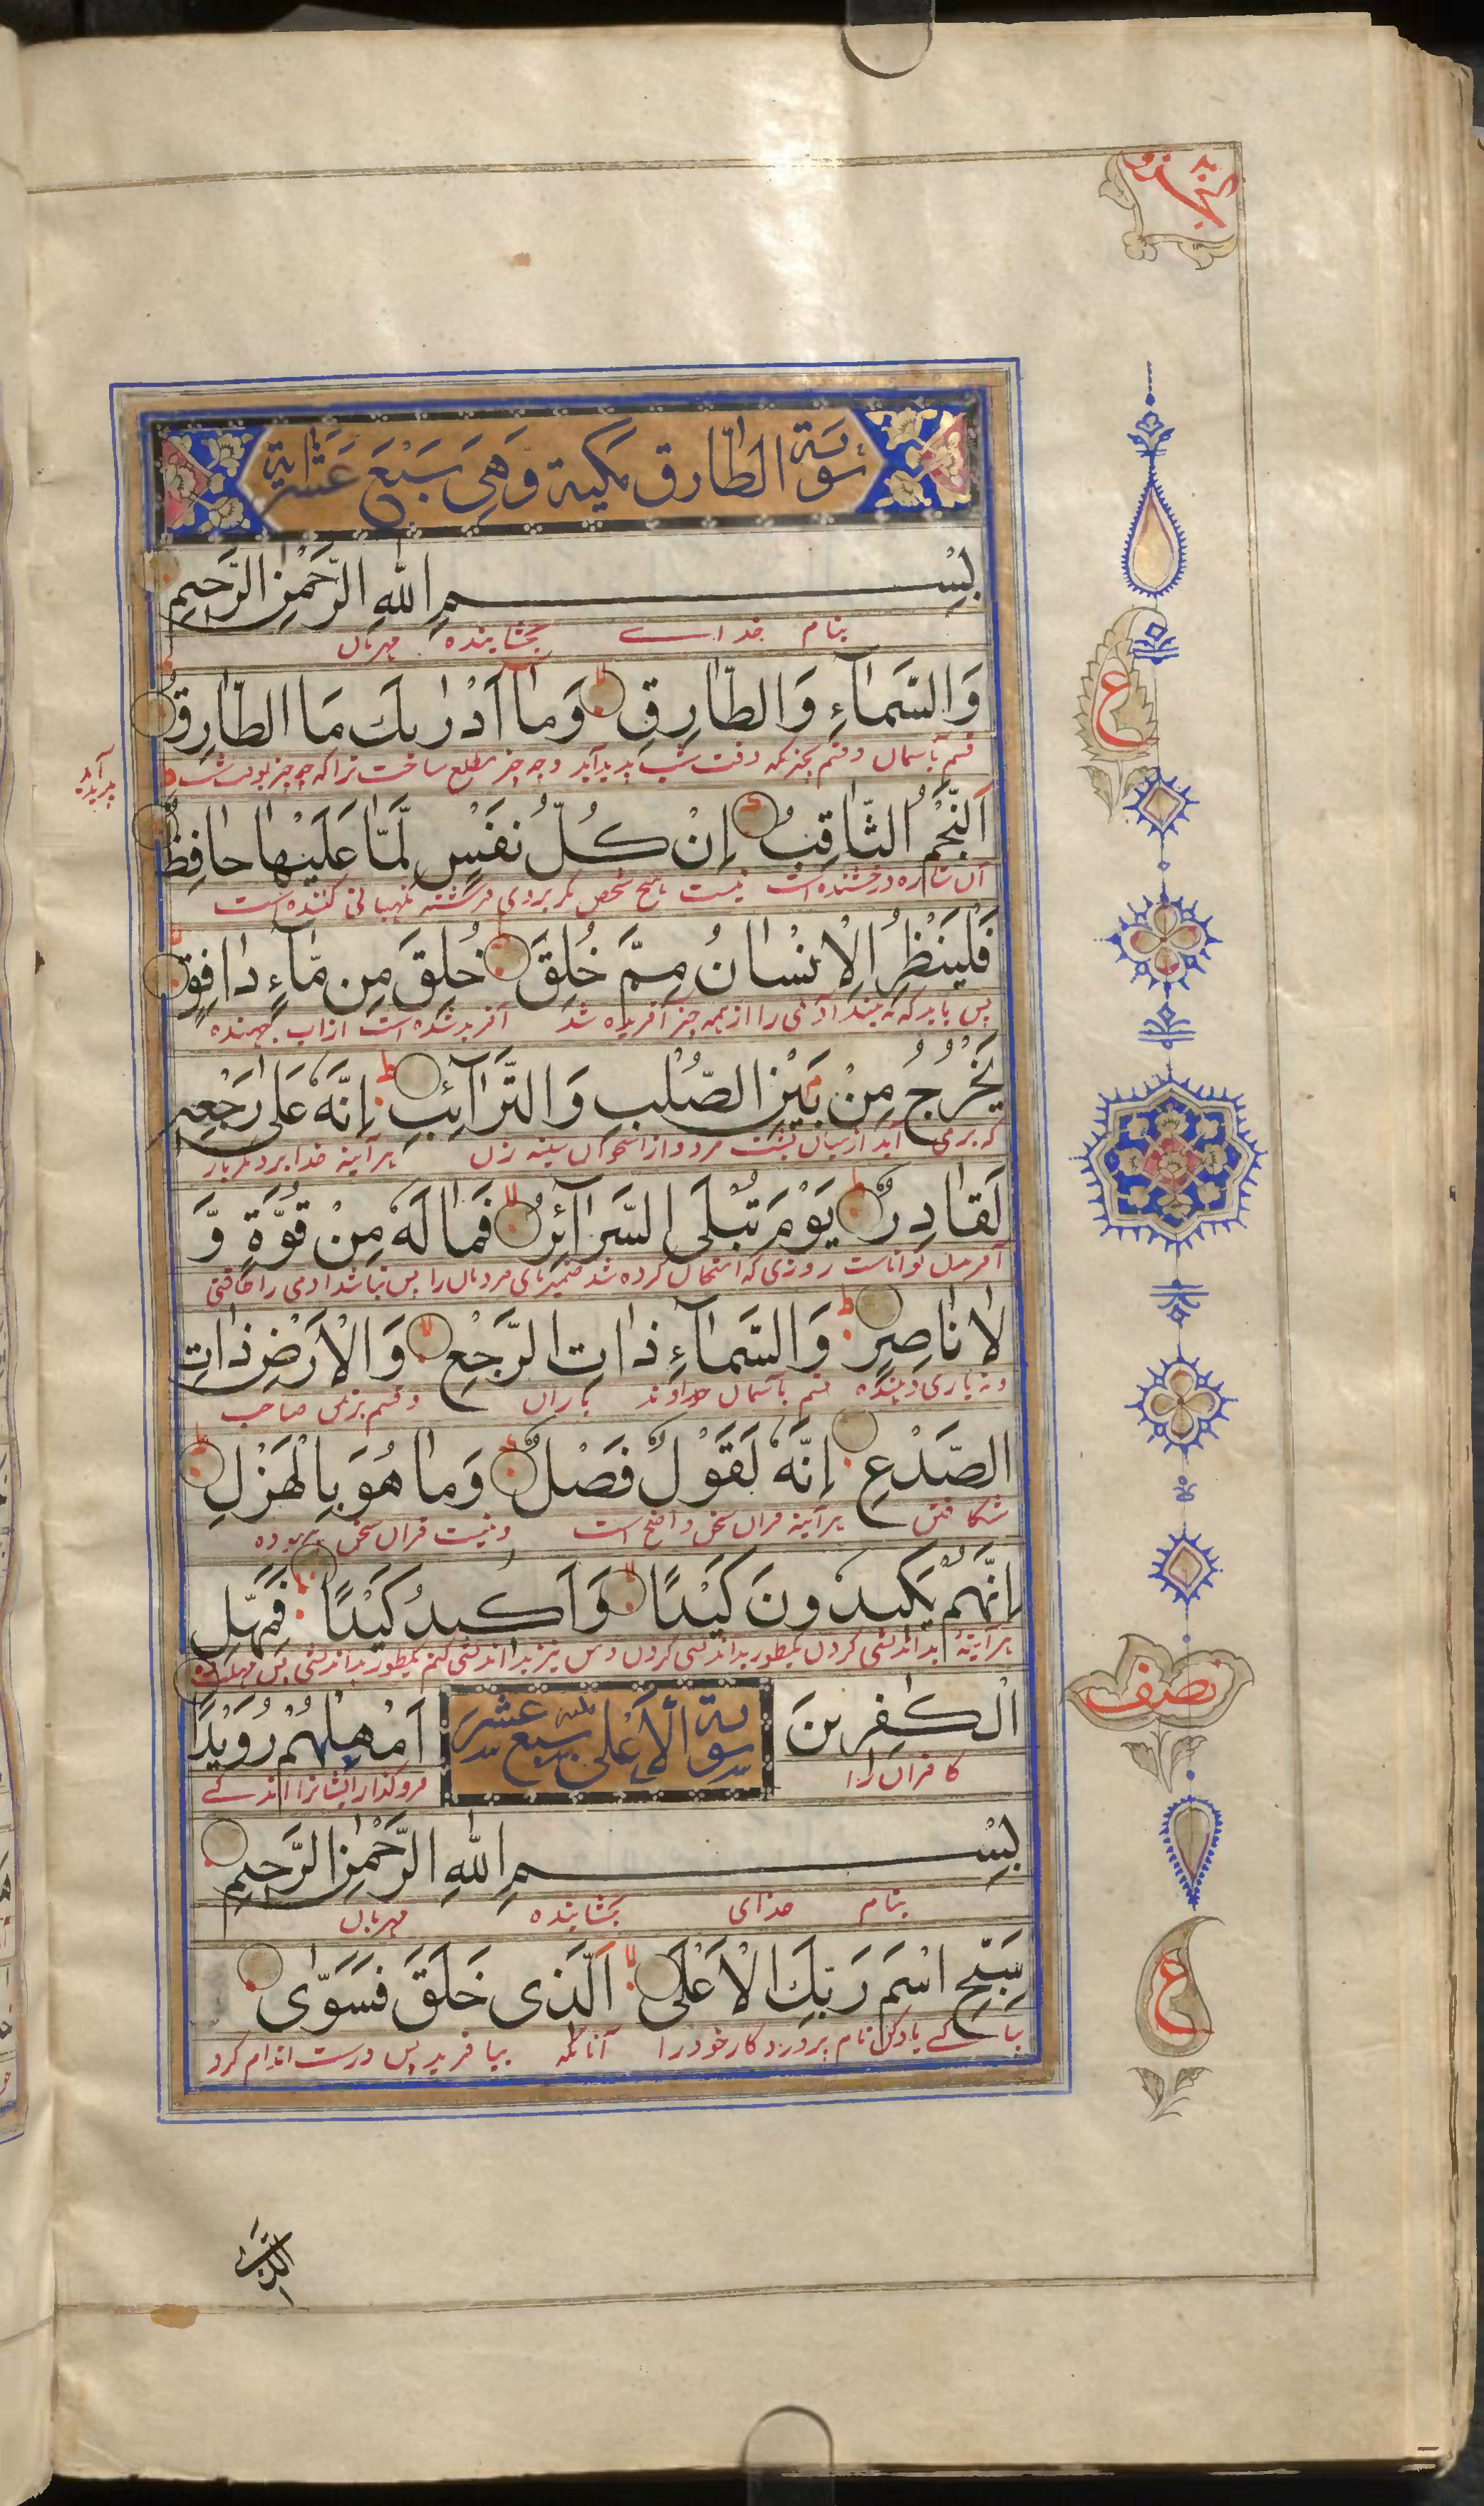 سورة الطارق مكية وهي سبع عشر اية
بِسْمِ اللهِ الرَّحْمٰنِ الرَّحِيمِ
بنام خداے بخشاینده مهربان
وَالسَّمَآءِ وَالطَّارِقِ وَمَآ اَدْرٰىكَ مَا الطَّارِقُ
قسم بآسمان و قسم بچیزیکه وقت شب پدید آید و چه چیز مطلع ساخت ترا که چه چیز بوقت شب
پدید آید
اَلنَّجْمُ الثَّاقِبُ اِنْ كُلُّ نَفْسٍ لَّمَّا عَلَيْهَا حَافِظٌ
آن ستاره درخشنده است نیست هیچ شخص مگر بروی فرشته نگهبانی کننده است
فَلْيَنْظُرِ الْاِنْسَانُ مِمَّ خُلِقَ خُلِقَ مِن مَّآءٍ دَافِقٍ
پس باید که به بیند آدمی را از چه چیز آفریده شد آفریده شده است از آب جهنده
يَخْرُجُ مِنْ بَيْنِ الصُّلْبِ وَالتَّرَآئِبِ اِنَّهٗ عَلٰى رَجْعِهٖ
که برمی آید از میان پشت مرد و از استخوان سینه زن هر آینه خدا بر دیگر بار
لَقَادِرٌ يَوْمَ تُبْلَى السَّرَآئِرُ فَمَا لَهٗ مِنْ قُوَّةٍ وَّ
آفریدن تواناست روزی که امتحان کرده شد ضمیرهای مردمان را پس نباشد آدمی را طاقتی
لَا نَاصِرٍ وَالسَّمَآءِ ذَاتِ الرَّجْعِ وَالْاَرْضِ ذَاتِ
و نه یاری دهنده قسم بآسمان خداوند باران و قسم بزمین صاحب
الصَّدْعِ اِنَّهٗ لَقَوْلٌ فَصْلٌ وَمَا هُوَ بِالْهَزْلِ
شکافتن هر آینه قران سخن واضح است و نیست قران سخن بیهوده
اِنَّهُمْ يَكِيدُونَ كَيْدًا وَاَكِيدُ كَيْدًا فَمَهِّلِ
الْكٰفِرِينَ
سورة الاعلى سبع عشر
اَمْهِلْهُمْ رُوَيْدًا
کافران را
فروگذار ایشانرا اندکے
بِسْمِ اللهِ الرَّحْمٰنِ الرَّحِيمِ
بنام خدای بخشاینده مهربان
سَبِّحِ اسْمَ رَبِّكَ الْاَعْلَى الَّذِى خَلَقَ فَسَوّٰى
بپاکے یاد کن نام پروردگار خود را آنانکه بیافرید پس درست اندام کرد
ع
نصف
ع